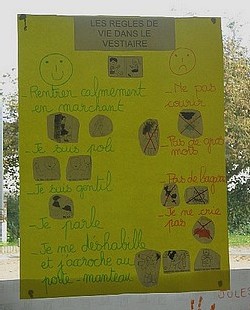 LES REGLES DE
VIE DANS LE
VESTIAIRE
_Rentrer calmement
en marchant
_Je suis poli
_Je suis gentil
_Je parle
_Je me déshabille
et j'accroche au
porte-manteau
_Ne pas
courir
_Pas de gros
mots
_Pas de bagarre
_Je ne crie
pas
JULES